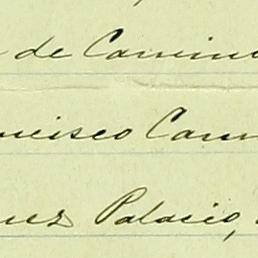 de Camin
ncisco Cam
uez Palacio,